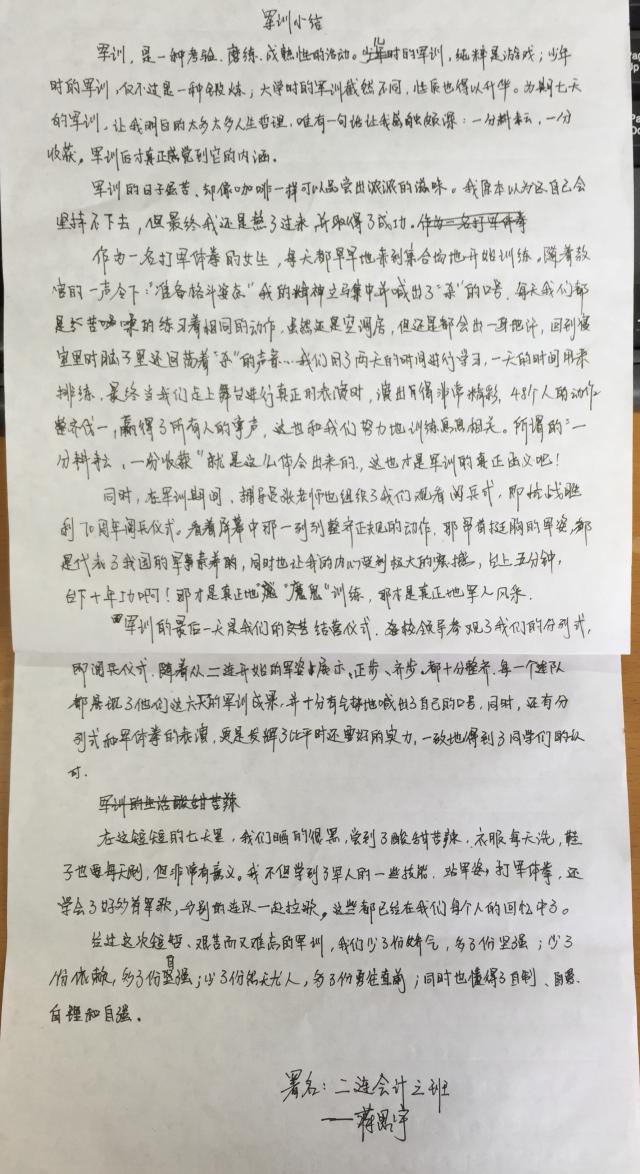 军训小结
军训，是一种考验、磨练、成熟性的活动。少儿时的军训，纯粹是游戏；少年
时的军训，仅不过是一种锻炼；大学时的军训截然不同，性质也得以升华。为期七天
的军训，让我明白的太多太多人生哲理，唯有一句话让我感触颇深：一分耕耘，一分
收获。军训后才真正感觉到它的内涵。
军训的日子虽苦、却像咖啡一样可以品尝出浓浓的滋味。我原本以为这自己会
坚持不下去，但最终我还是熬了过来，并取得了成功。作为一名打军体拳
作为一名打军体拳的女生，每天都早早地来到集合场地开始训练。随着教
官的一声令下："准备格斗姿态"我的精神立马集中并喊出了"杀"的口号，每天我们都
是不苦的练习着相同的动作，虽然还是空调房，但还是都会出一身把汗，回到寝
室里时脑子里还回荡着"杀"的声音…我们用了两天的时间进行学习，一天的时间用来
排练，最终当我们走上舞台进行真正的表演时，演出的得非常精彩，48个人的动作
整齐伐一，赢得了所有人的掌声，这也和我们努力地训练息息相关。所谓的"一
分耕耘，一份收获"就是这么体会出来的，这也才是军训的真正函义吧！
同时，在军训期间，辅导员张老师也组织了我们观看阅兵式，即抗战胜
利70周年阅兵仪式。看着屏幕中那一列列整齐正规的动作，那昂首挺胸的军姿，都
是代表了我国的军事素养的，同时也让我的内心受到极大的震撼，台上五分钟，
台下十年功啊！那才是真正地"魔鬼"训练，那才是真正地军人风采.
军训的最后一天是我们的结营仪式，各校领导参观了我们的分列式，
即阅兵仪式，随着从二连开始的军姿展示、正步、齐步，都十分整齐，每一个连队
都展现了他们这六天的军训成果，并十分有气势地喊出了自己的口号，同时，还有分
列式和军体拳的表演，更是发挥了比平时还要好的实力，一致地得到了同学们的认
可.
军训的生活酸甜苦辣
在这短短的七天里，我们晒的很黑，尝到了酸甜苦辣，衣服每天洗，鞋
子也要每天刷，但非常有意义。我不但学到了军人的一些技能，站军姿，打军体拳，还
学会了好多首军歌，与别的连队一起拉歌。这些都已经在我们每个人的回忆中了。
经过这次短暂、艰苦而又难忘的军训，我们少了份娇气，多了份坚强；少了
份依赖，多了份自强；少了份怨天尤人，多了份勇往直前；同时也懂得了自制、自尊、
自理和自强.
署名：二连会计三班
——蒋思宇